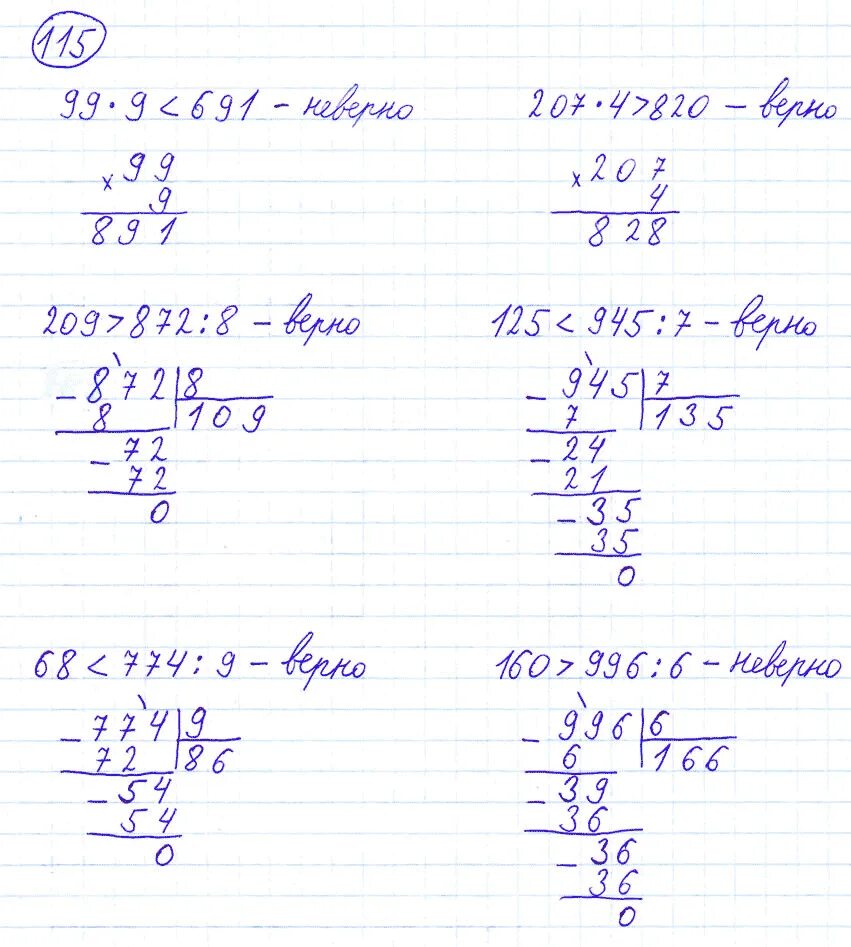 115
99·9<691 – неверно
× 99
9
891
207·4>820 – верно
× 207
4
828
209>872:8 – верно
– 872 | 8
8 | 109
– 72
72
0
125<945:7 – верно
– 945 | 7
7 | 135
– 24
21
– 35
35
0
68<774:9 – верно
– 774 | 9
72 | 86
– 54
54
0
160>996:6 – неверно
– 996 | 6
6 | 166
– 39
36
– 36
36
0